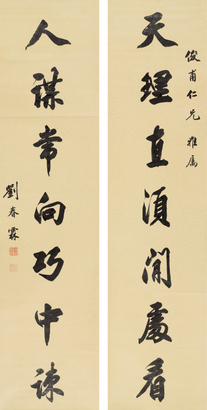 天理直須閒處看
俊甫仁兄雅屬
人謀常向巧中疎
劉春霖